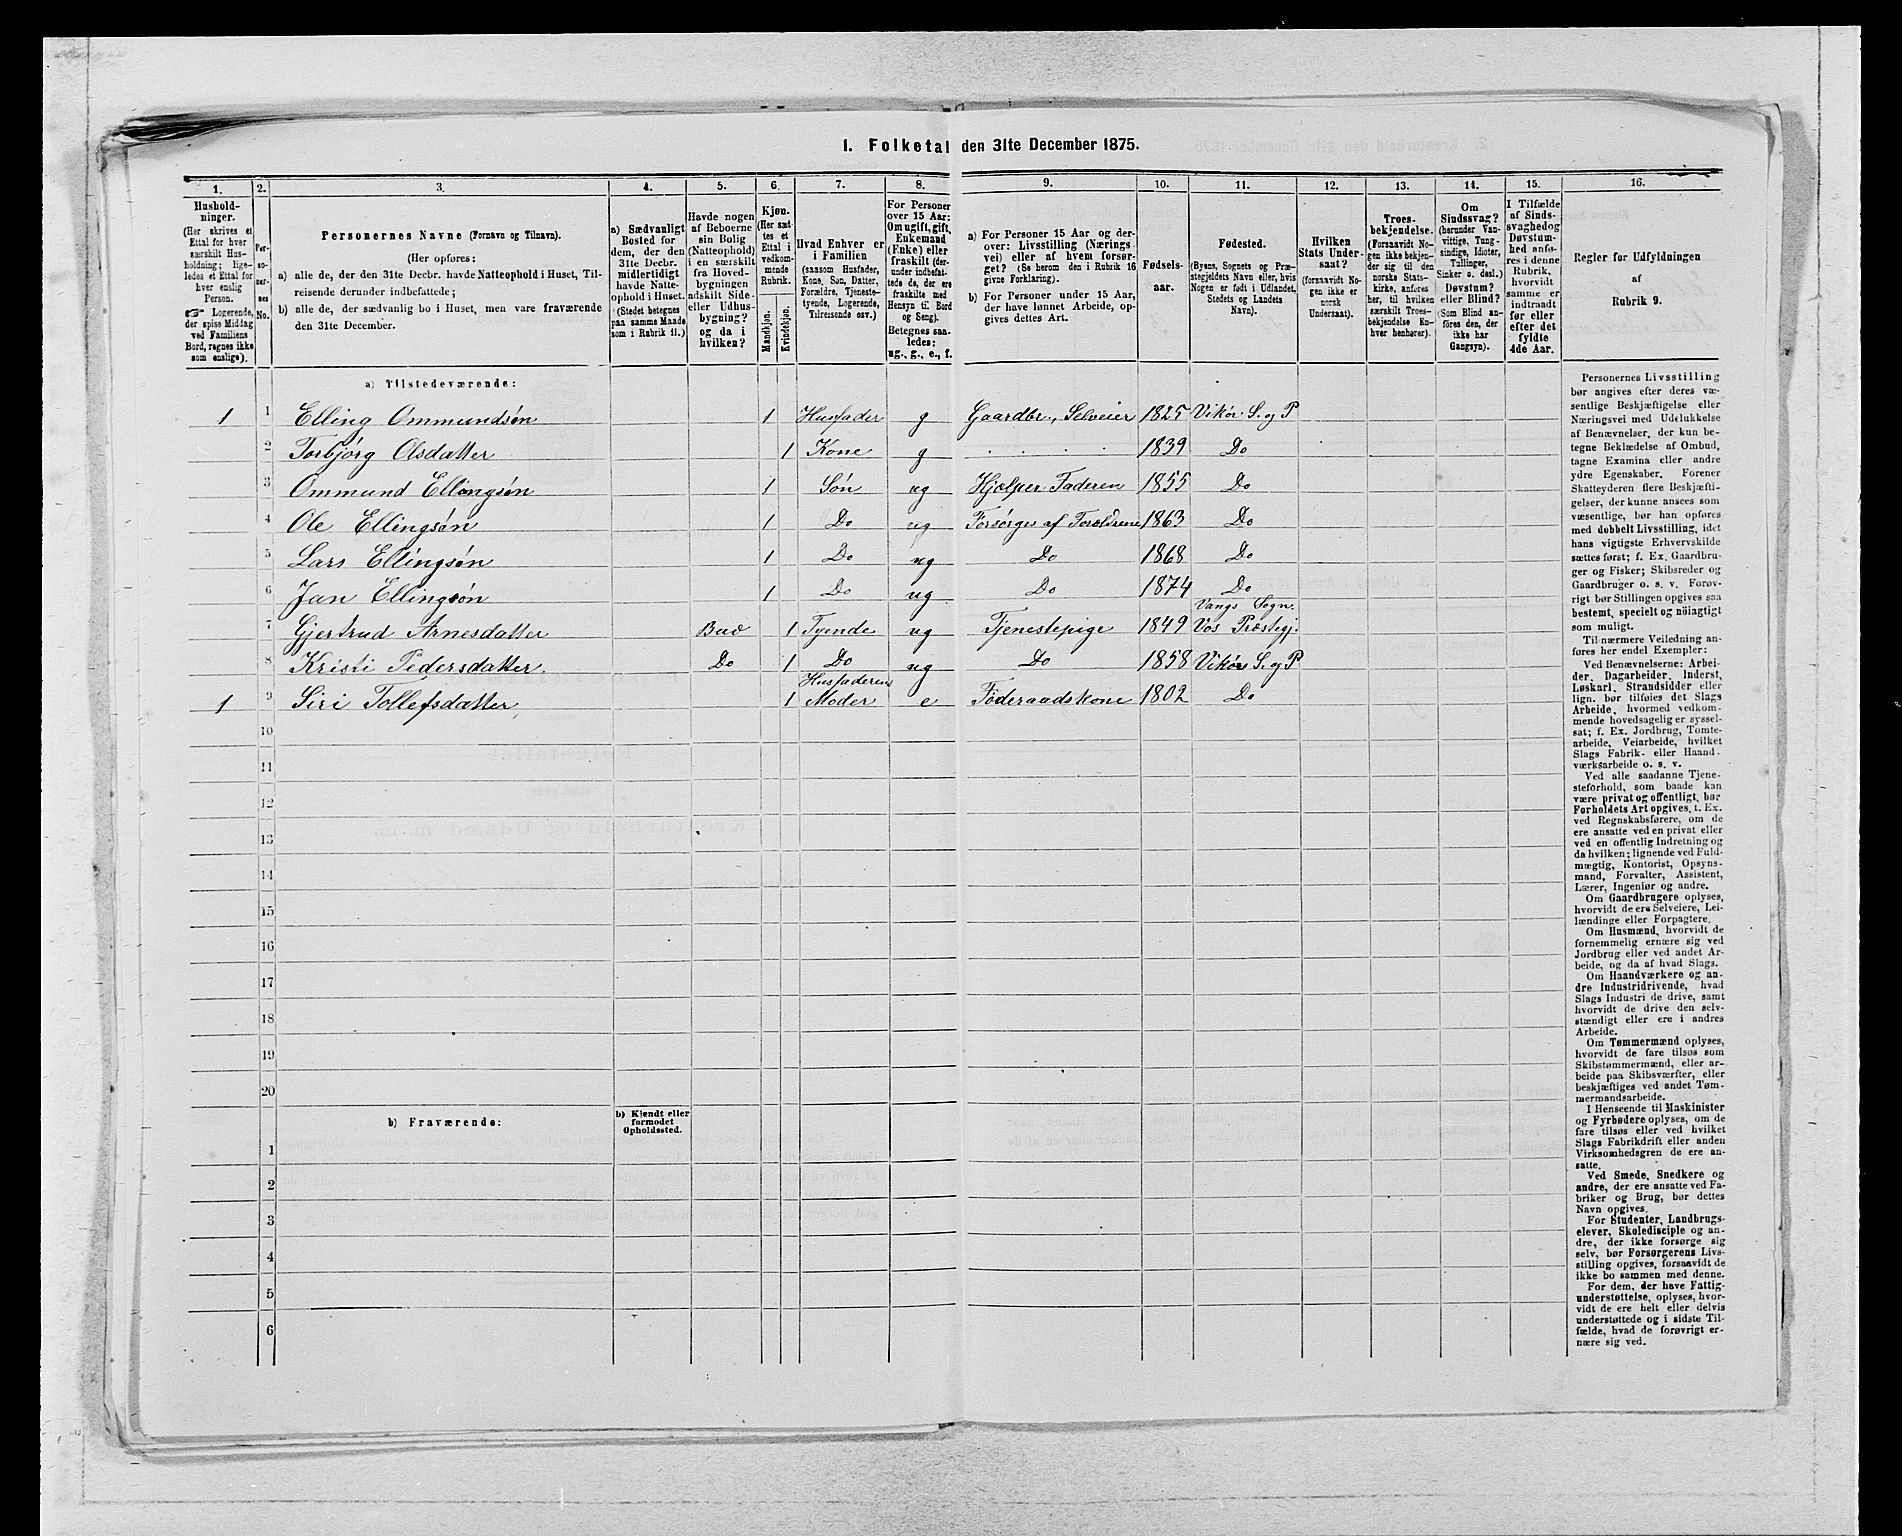 1. Folketal den 31te December 1875.
1. 2. 3. 4. 5. 6. 7. 8. 9. 10. 11. 12. 13. 14. 15. 16.
Hushold-
ninger.
(Her skrives et
Ettal for hver
særskilt Hus-
holdning; lige-
ledes et Ettal for
hver enslig
Person.
☞ Logerende,
der spise Middag
ved Familiens
Bord, regnes ikke
som enslige).
Per-
so-
ner-
nes
No.
Personernes Navne (Fornavn og Tilnavn).
(Her opføres:
a) alle de, der den 31te Decbr. havde Natteophold i Huset, Til-
reisende derunder indbefattede;
b) alle de, der sædvanlig bo i Huset, men vare fraværende
den 31te December.
a) Sædvanligt
Bosted for
dem, der den
31te Decbr.
midlertidigt
havde Natte-
ophold i Huset.
(Stedet betegnes
paa samme Maade
som i Rubrik 11.)
Havde nogen
af Beboerne
sin Bolig
(Natteophold)
i en særskilt
fra Hoved-
bygningen
adskilt Side-
eller Udhus-
bygning?
og da i
hvilken?
Kjøn.
(Her sæt-
tes et
Ettal i
vedkom-
mende
Rubrik.
Mandkjøn.
Kvindekjøn.
Hvad Enhver er
i Familien
(saasom Husfader,
Kone, Søn, Datter,
Forældre, Tjeneste-
tyende, Logerende,
Tilreisende osv.)
For Personer
over 15 Aar:
Om ugift, gift,
Enkemand
(Enke) eller
fraskilt (der-
under indbefat-
tede de, der ere
fraskilte med
Hensyn til Bord
og Seng).
Betegnes saa-
ledes:
ug., g., e., f.
a) For Personer 15 Aar og der-
over: Livsstilling (Nærings
vei) eller af hvem forsør-
get? (Se herom den i Rubrik 16
givne Forklaring).
b) For Personer under 15 Aar,
der have lønnet Arbeide, op-
gives dettes Art.
Fødsels-
aar.
Fødested.
(Byens, Sognets og Præ-
stegjeldets Navn eller, hvis
Nogen er født i Udlandet,
Stedets og Landets
Navn).
Hvilken
Stats Under-
saat?
(forsaavidt No-
gen ikke er
norsk
Undersaat).
Troes-
bekjendelse.
(Forsaavidt No-
gen ikke bekjen-
der sig til den
norske Stats-
kirke, anføres
her, til hvilken
særskilt Troes-
bekjendelse En-
hver henhører).
Om
Sindssvag?
(herunder Van-
vittige, Tung-
sindige, Idioter,
Tullinger,
Sinker o. desl.)
Døvstum?
eller Blind?
(Som Blind an-
føres den, der
ikke har
Gangsyn).
I Tilfælde
af Sinds-
svaghed og
Døvstum-
hed anfø-
res i denne
Rubrik,
hvorvidt
samme er
indtraadt
før eller
efter det
fyldte
4de Aar.
Regler for Udfyldningen
af
Rubrik 9.
a) Tilstedeværende:
1 1 Elling Ommundsøn 1 Husfader g Gaardbr., Selveier 1825 Vikør S. og P
2 Torbjørg Olsdatter 1 Kone g . . . . 1839 Do
3 Ommund Ellingsøn 1 Søn ug Hjælper Faderen 1855 Do
4 Ole Ellingsøn 1 Do ug Forsørges af Forældrene 1863 Do
5 Lars Ellingsøn 1 Do ug Do 1868 Do
6 Jan Ellingsøn 1 Do ug Do 1874 Do
Vangs Sogn.
7 Gjertrud Arnesdatter Bud 1 Tyende ug Tjenestepige 1849 Vos Præstegj.
8 Kristi Pedersdatter Do 1 Do ug Do 1858 Vikør S. og P
Husfaderens
1 9 Siri Tollefsdatter 1 Moder e Føderaadskone 1802 Do
10
11
12
13
14
15
16
17
18
19
20
b) Fraværende:
b) Kjendt eller
formodet
Opholdssted.
1
2
3
4
5
6
Personernes Livsstilling
bør angives efter deres væ-
sentlige Beskjæftigelse eller
Næringsvei med Udelukkelse
af Benævnelser, der kun be-
tegne Beklædelse af Ombud,
tagne Examina eller andre
ydre Egenskaber. Forener
Skatteyderen flere Beskjæfti-
gelser, der kunne ansees som
væsentlige, bør han opføres
med dobbelt Livsstilling, idet
hans vigtigste Erhvervskilde
sættes først; f. Ex. Gaardbru-
ger og Fisker; Skibsreder og
Gaardbruger o. s. v. Forøv-
rigt bør Stillingen opgives saa
bestemt, specielt og nöiagtigt
som muligt.
Til nærmere Veiledning an-
føres her endel Exempler:
Ved Benævnelserne: Arbei-
der, Dagarbeider, Inderst,
Løskarl, Strandsidder eller
lign. bør tilføies det Slags
Arbeide, hvormed vedkom-
mende hovedsagelig er syssel-
sat; f. Ex. Jordbrug, Tomte-
arbeide, Veiarbeide, hvilket
Slags Fabrik- eller Haand-
værksarbeide o. s. v.
Ved alle saadanne Tjene-
steforhold, som baade kan
være privat og offentligt, bør
Forholdets Art opgives, t. Ex.
ved Regnskabsførere, om de
ere ansatte ved en privat eller
ved en offentlig Indretning og
da hvilken; lignende ved Fuld-
mægtig, Kontorist, Opsyns-
mand, Forvalter, Assistent,
Lærer, Ingeniør og andre.
Om Gaardbrugere oplyses,
hvorvidt de ere Selveiere, Lei-
lændinge eller Forpagtere.
Om Husmænd, hvorvidt de
fornemmelig ernære sig ved
Jordbrug eller ved andet Ar-
beide, og da af hvad Slags.
Om Haandværkere og an-
dre Industridrivende, hvad
Slags Industri de drive, samt
hvorvidt de drive den selv-
stændigt eller ere i andres
Arbeide.
Om Tømmermænd oplyses,
hvorvidt de fare tilsøs som
Skibstømmermænd, eller ar-
beide paa Skibsværfter, eller
beskjæftiges ved andet Tøm-
mermandsarbeide.
I Henseende til Maskinister
og Fyrbødere oplyses, om de
fare tilsøs eller ved hvilket
Slags Fabrikdrift eller anden
Virksomhedsgren de ere an-
satte.
Ved Smede, Snedkere og
andre, der ere ansatte ved Fa-
briker og Brug, bør dettes
Navn opgives.
For Studenter, Landbrugs-
elever, Skoledisciple og an-
dre, der ikke forsørge sig
selv, bør Forsørgerens Livs-
stilling opgives, forsaavidt de
ikke bo sammen med denne.
For dem, der have Fattig-
understøttelse, oplyses, hvor-
vidt de ere helt eller delvis
understøttede og i sidste Til-
fælde, hvad de forøvrigt er-
nære sig ved.